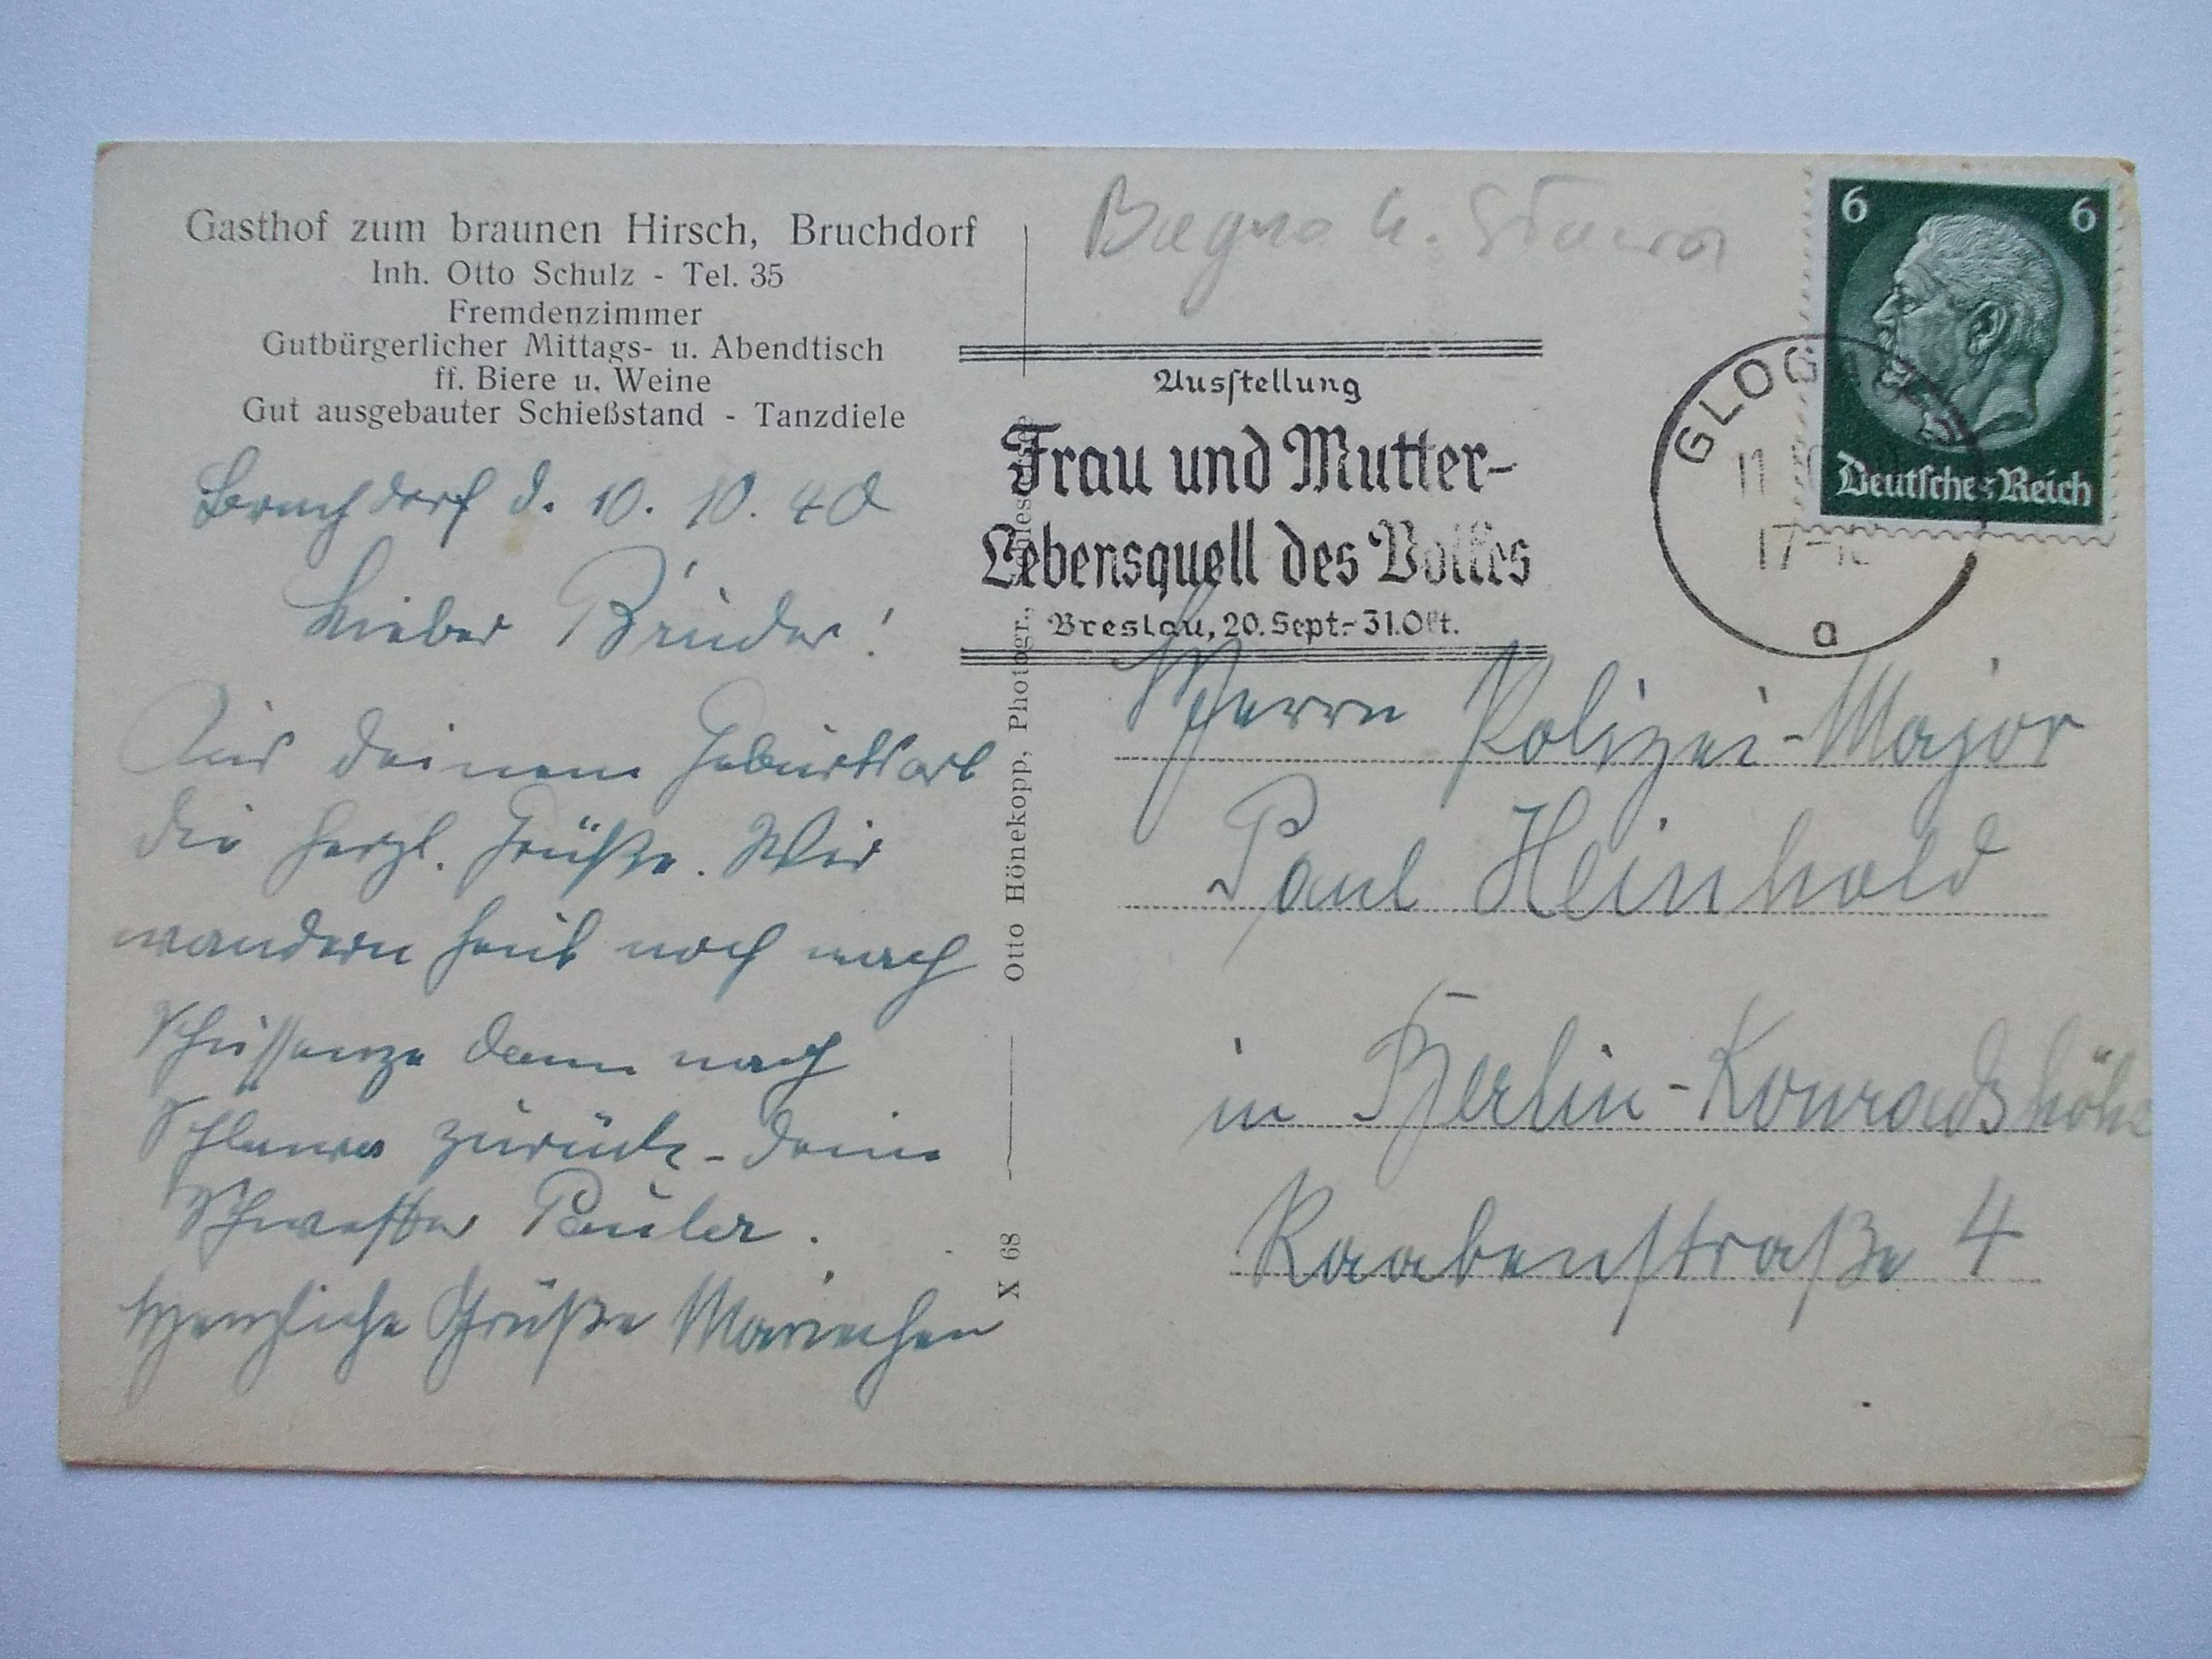 Gasthof zum braunen Hirsch, Bruchdorf
Inh. Otto Schulz - Tel. 35
Fremdenzimmer
Gutbürgerlicher Mittags- u. Abendtisch
ff. Biere u. Weine
Gut ausgebauter Schießstand - Tanzdiele
Bruchdorf d. 10. 10. 40
Lieber Bruder!
Aus deinem Geburtsort
die herzl. Grüße. Wir
wandern heut noch nach
dann nach
Schlawa zurück - Deine
Schwester
Herzliche Grüße Mariechen
Otto Hönekopp, Photogr.,
X 68
Ausstellung
Frau und Mutter-
Lebensquell des Volkes
Breslau, 20. Sept.- 31. Okt.
GLOG
11
17-
a
6 6
Deutsches Reich
Herrn Polizei-Major
Paul Heinhold
in Berlin-Konradshöhe
Raabenstraße 4